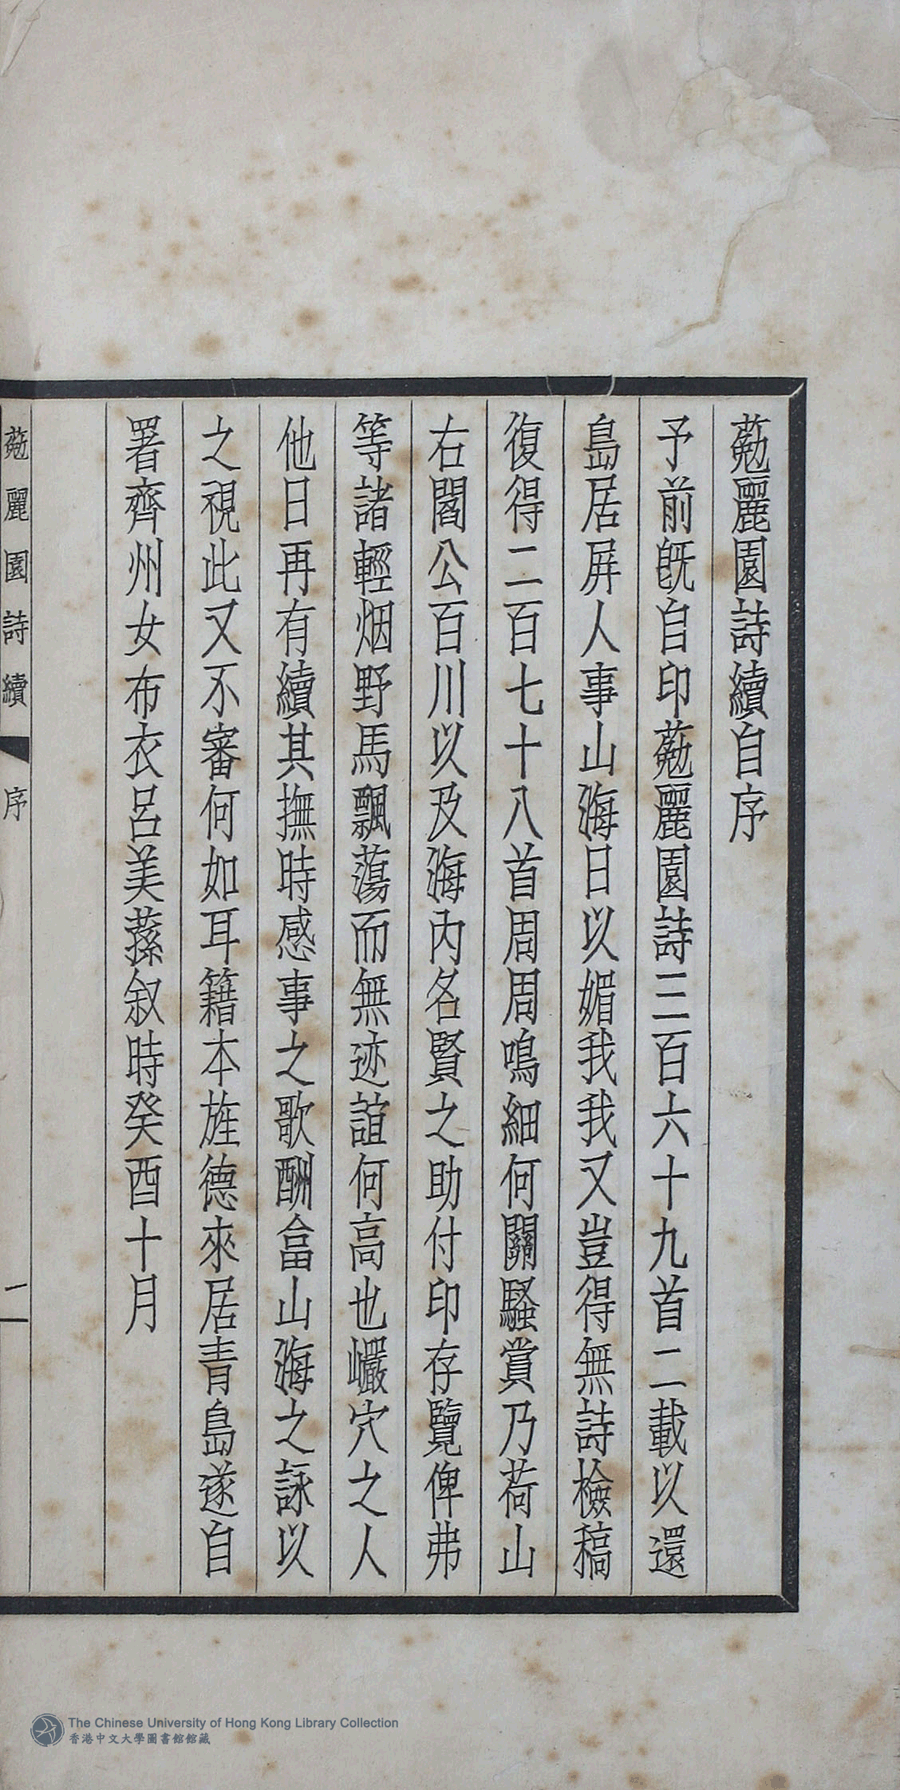 葂麗園詩續自序
予前既自印葂麗園詩三百六十九首二載以還
島居屏人事山海日以媚我我又豈得無詩檢稿
復得二百七十八首周周鳴細何關騷賞乃荷山
右閻公百川以及海內名賢之助付印存覽俾弗
等諸輕烟野馬飄蕩而無迹誼何高也巖穴之人
他日再有續其撫時感事之歌酬畣山海之詠以
之視此又不審何如耳籍本旌德來居青島遂自
署齊州女布衣呂美蓀叙時癸酉十月
葂麗園詩續
序
一
The Chinese University of Hong Kong Library Collection
香港中文大學圖書館館藏